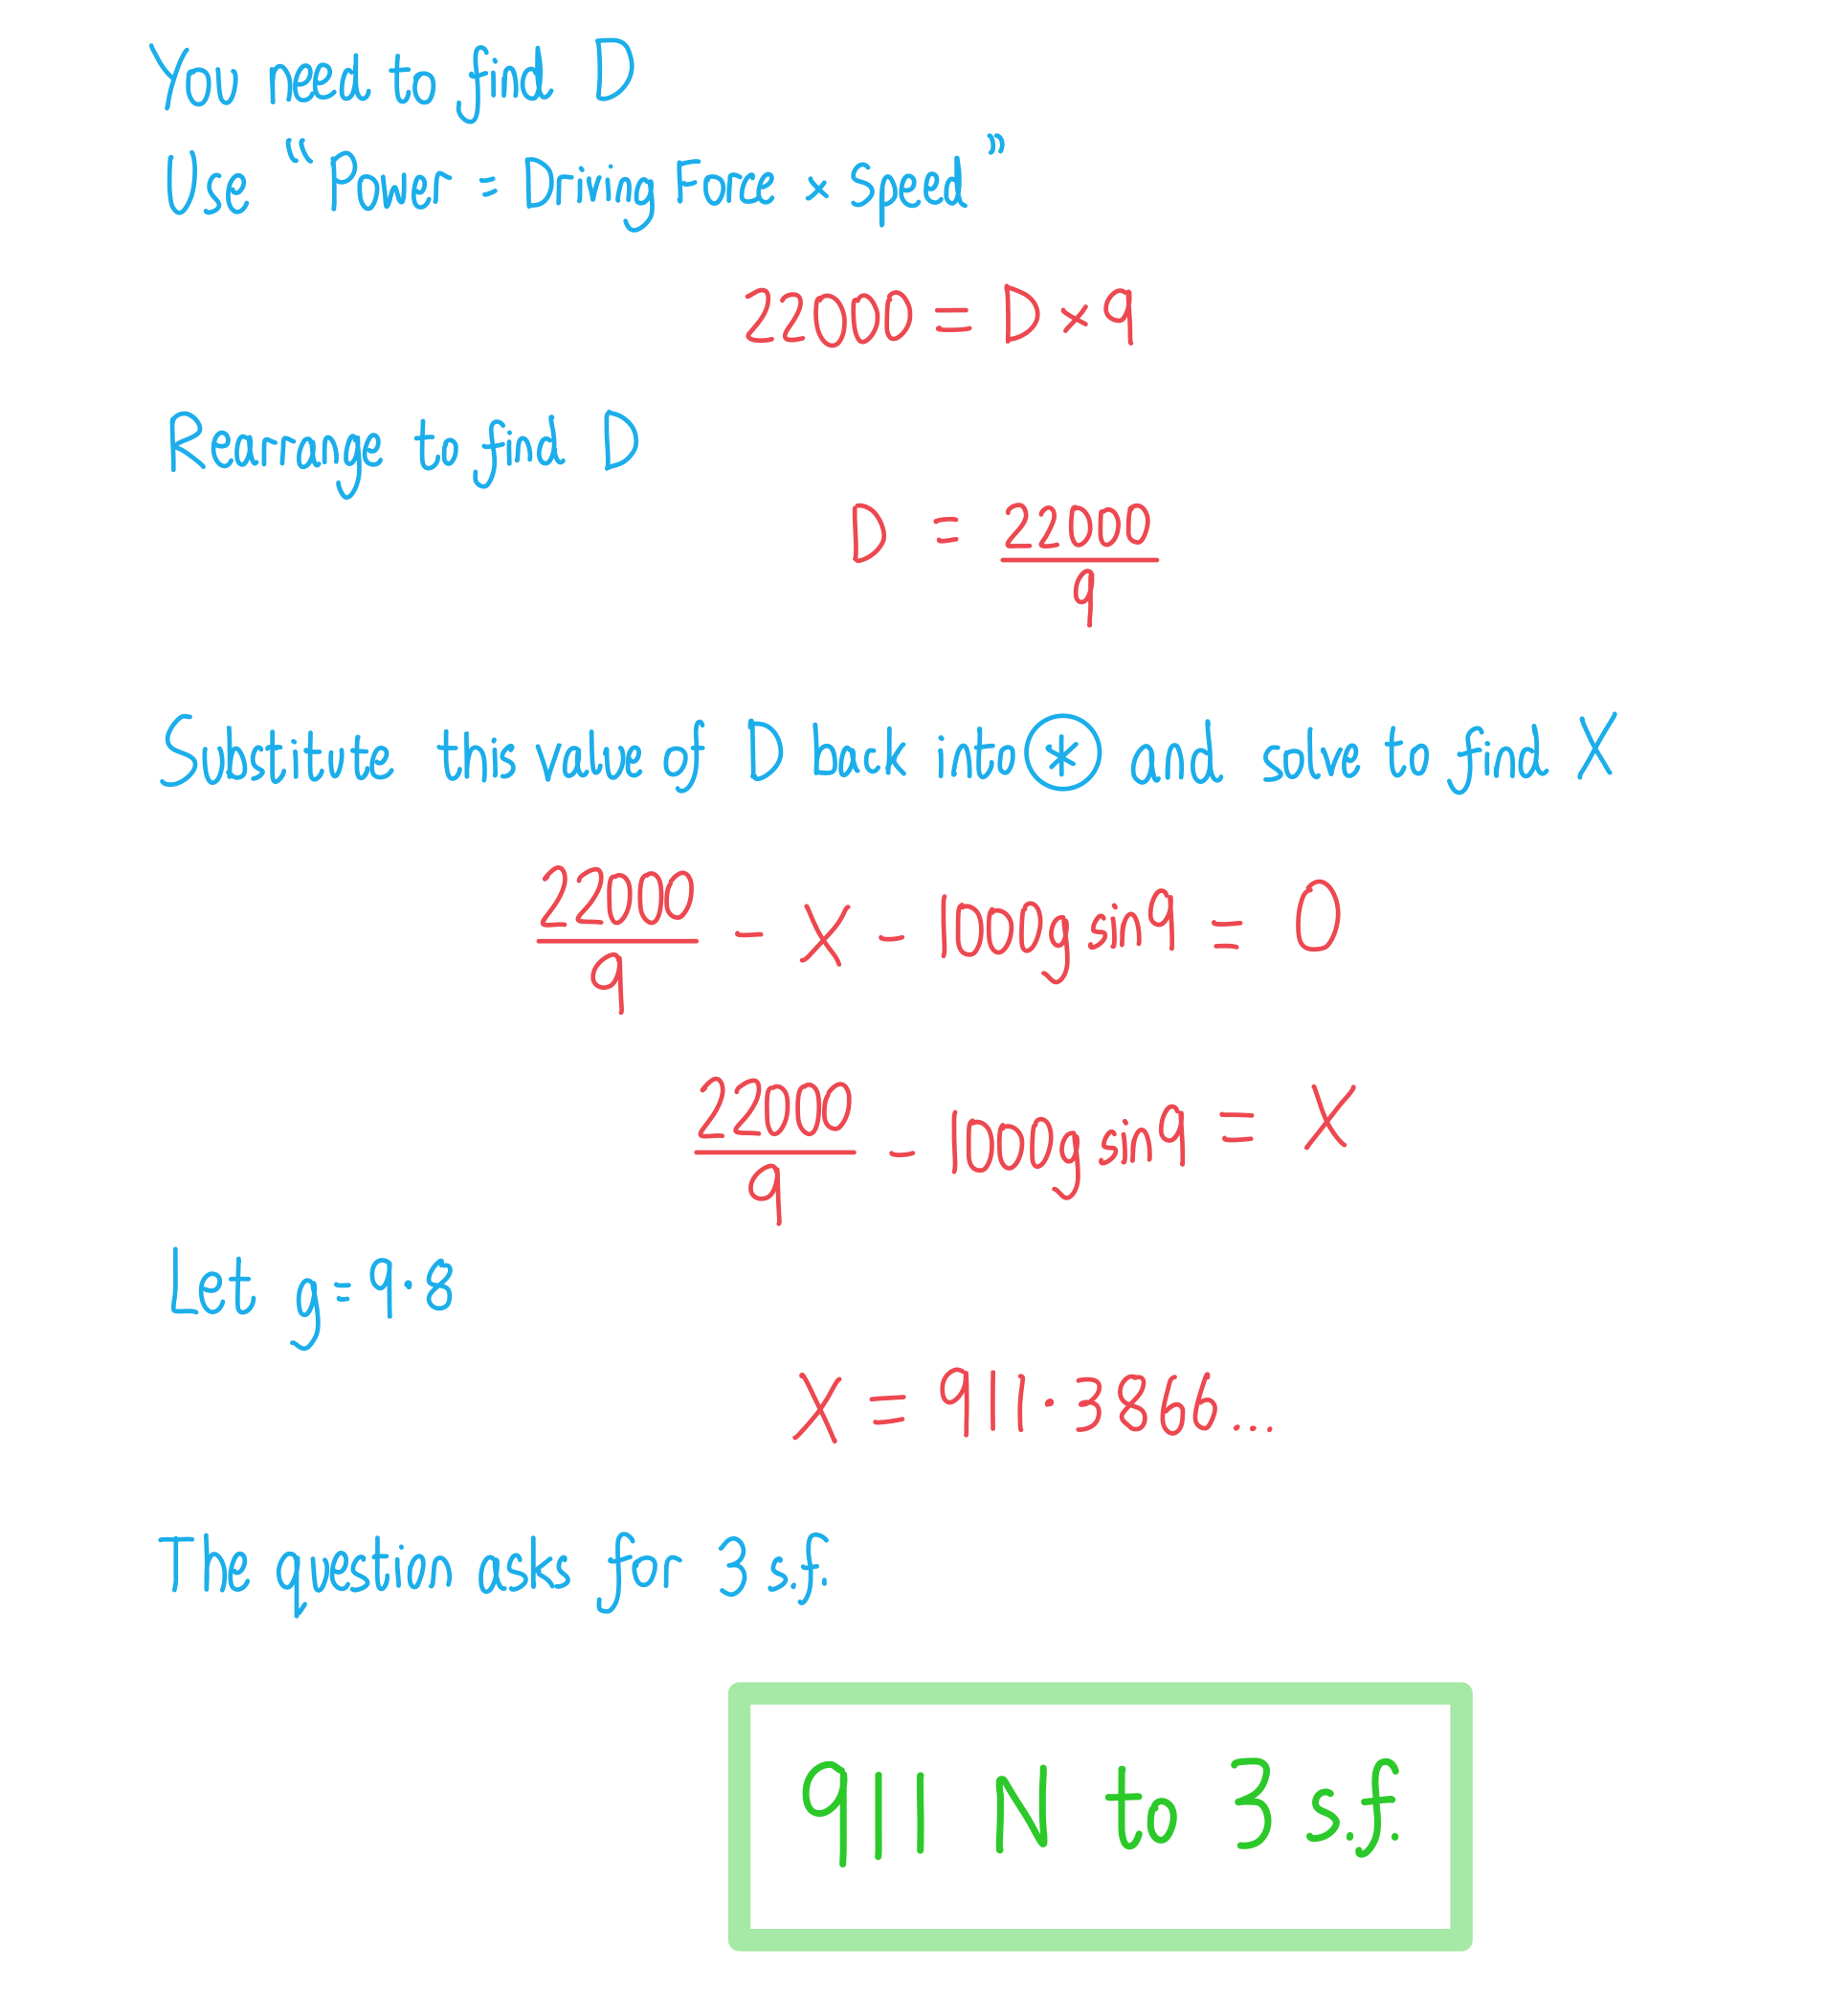 You need to find D
Use “Power = Driving Force × speed”
22000 = D × 9
Rearrange to find D
D = 22000/9
Substitute this value of D back into ⊛ and solve to find X
22000/9 - X - 1000g sin9 = 0
22000/9 - 1000g sin9 = X
Let g = 9·8
X = 911·3866...
The question asks for 3 s.f.
911 N to 3 s.f.